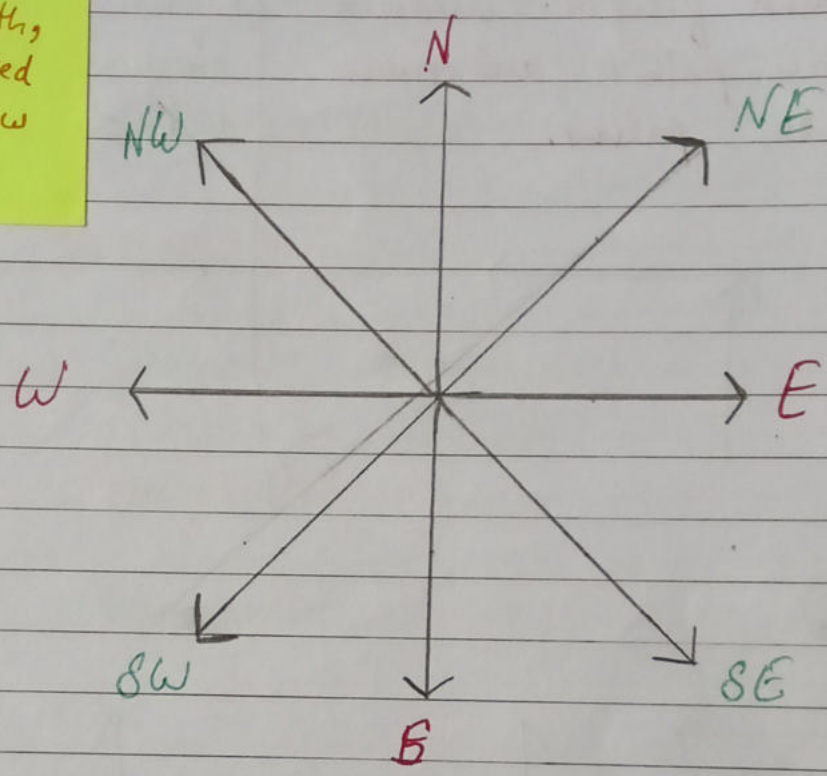 th,
ed
w
N
NW
NE
W
E
SW
SE
S